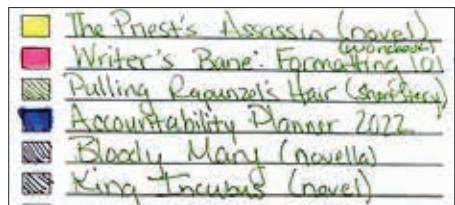 The Priest's Assassin (novel)
Writer's Bane: Formatting 101 (workbook)
Pulling Rapunzel's Hair (short story)
Accountability Planner 2022
Bloody Mary (novella)
King Incubus (novel)